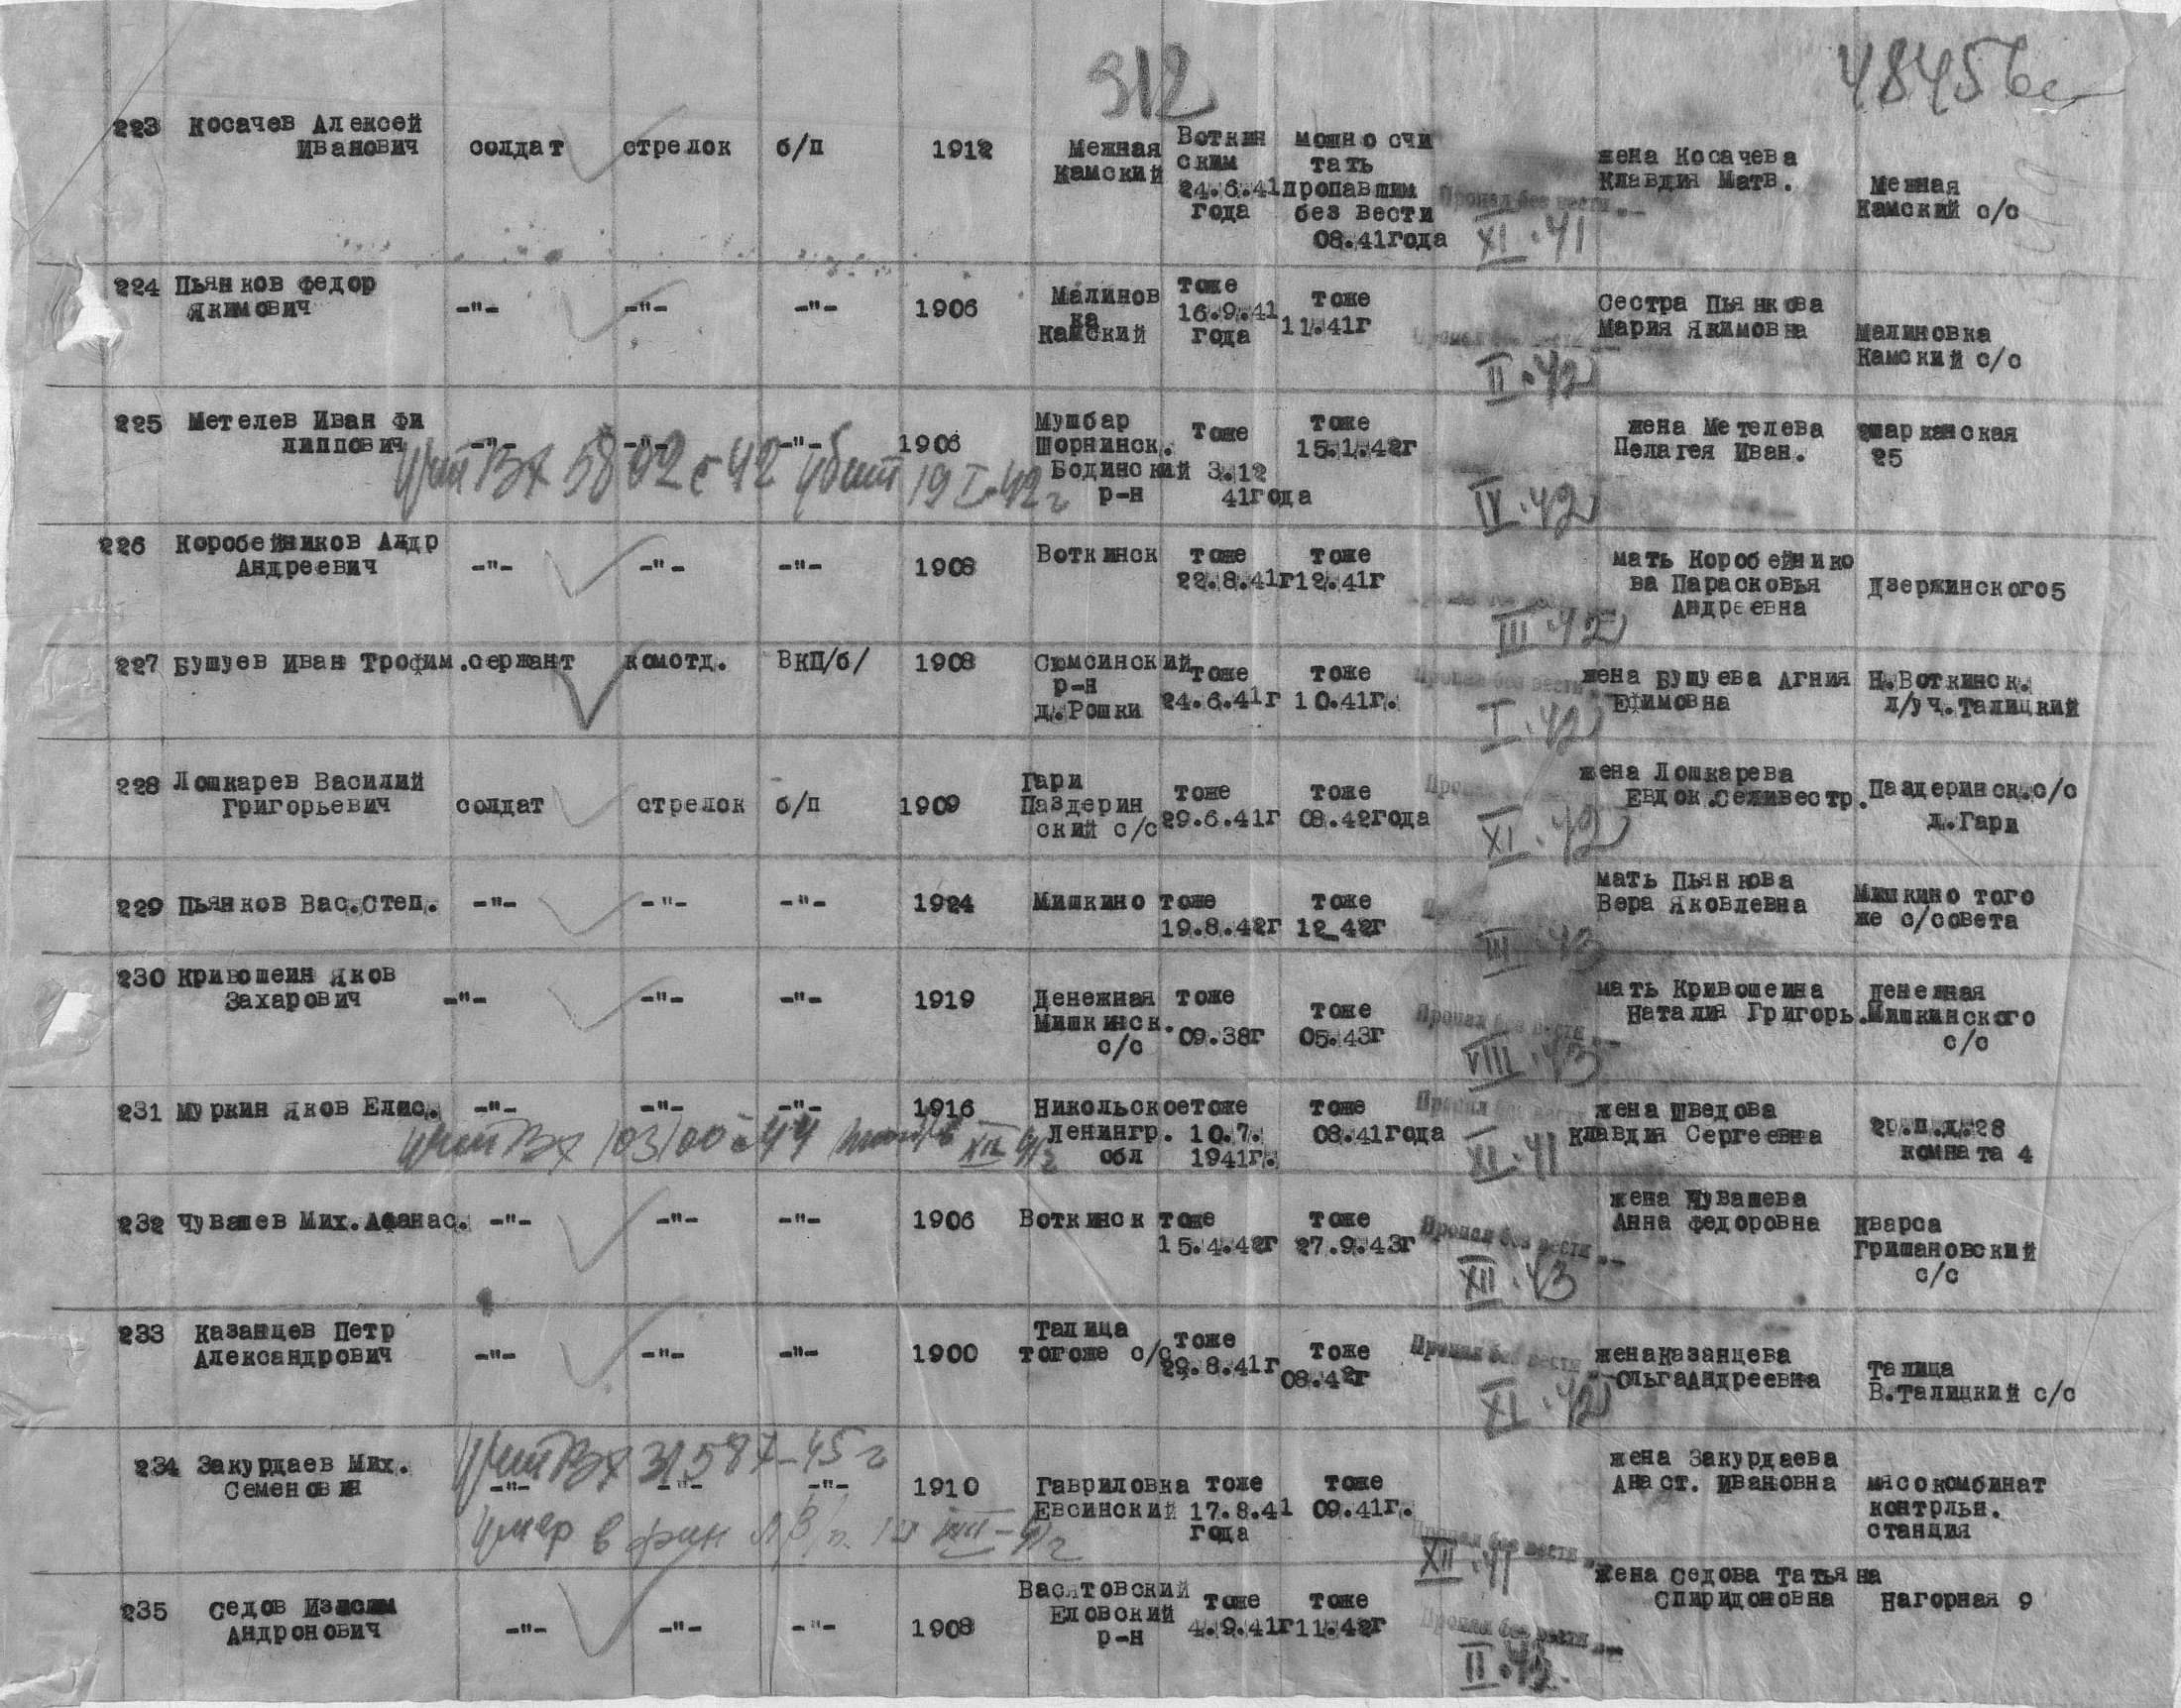 312
48456с
223 Косачев Алексей Иванович солдат стрелок б/п 1912 Межная Камский Воткин ским 24.6.41 года можно счи тать пропавшим без вести 08.41года Пропал без вести XI.41 жена Косачева Клавдия Матв. Межная Камский с/с
224 Пьянков Федор Якимович -"- -"- -"- 1906 Малинов ка Камский тоже 16.9.41 года тоже 11.41г Пропал без вести II.42 Сестра Пьянкова Мария Якимовна Малиновка Камский с/с
225 Метелев Иван Фи липпович -"- -"- -"- 1906 Мушбар Шорнинск. Бодинский р-н тоже 3.12 41года тоже 15.1.42г IV.42 жена Метелева Пелагея Иван. Шарканская 25
Вх 5802с-42 убит 19 I-42г
226 Коробейников Андр Андреевич -"- -"- -"- 1908 Воткинск тоже 22.8.41г тоже 12.41г III.42 мать Коробейнико ва Парасковья Андреевна Дзержинского5
227 Бушуев Иван Трофим. сержант комотд. ВКП/б/ 1908 Сюмсинский р-н д.Рошки тоже 24.6.41г тоже 10.41г. Пропал без вести I.42 жена Бушуева Агния Ефимовна Н.Воткинск. л/уч.Талицкий
228 Лошкарев Василий Григорьевич солдат стрелок б/п 1909 Гари Паздерин ский с/с тоже 29.6.41г тоже 08.42года Пропал XI.42 жена Лошкарева Евдок.Селивестр. Паздеринск.с/с д.Гари
229 Пьянков Вас.Степ. -"- -"- -"- 1924 Мишкино тоже 19.8.42г тоже 12_42г III.43 мать Пьянкова Вера Яковлевна Мишкино того же с/совета
230 Кривошеин Яков Захарович -"- -"- -"- 1919 Денежная Мишкинск. с/с тоже 09.38г тоже 05.43г Пропал без вести VIII.43 мать Кривошеина Наталия Григорь. Денежная Мишкинского с/с
231 Муркин Яков Елис. -"- -"- -"- 1916 Никольское Ленингр. обл тоже 10.7. 1941г. тоже 08.41года Пропал без вести XI.41 жена Шведова Клавдия Сергеевна 2п.п.д.28 комната 4
Вх 103100с-44 XII 41г
232 Чувашев Мих.Афанас. -"- -"- -"- 1906 Воткинск тоже 15.4.42г тоже 27.9.43г Пропал без вести XII.43 жена Чувашева Анна Федоровна Кварса Гришановский с/с
233 Казанцев Петр Александрович -"- -"- -"- 1900 Талица тогоже с/с тоже 29.8.41г тоже 08.42г Пропал без вести XI.42 женаКазанцева ОльгаАндреевна Талица В.Талицкий с/с
234 Закурдаев Мих. Семенович -"- -"- -"- 1910 Гавриловка Евсинский тоже 17.8.41 года тоже 09.41г. Пропал без вести XII.41 жена Закурдаева Анаст. Ивановна мясокомбинат контрльн. станция
Вх 31587-45г
Умер в фин
235 Седов Андронович -"- -"- -"- 1908 Васятовский Еловский р-н тоже 4.9.41г тоже 11.42г Пропал без вести II.42 жена Седова Татьяна Спиридоновна Нагорная 9